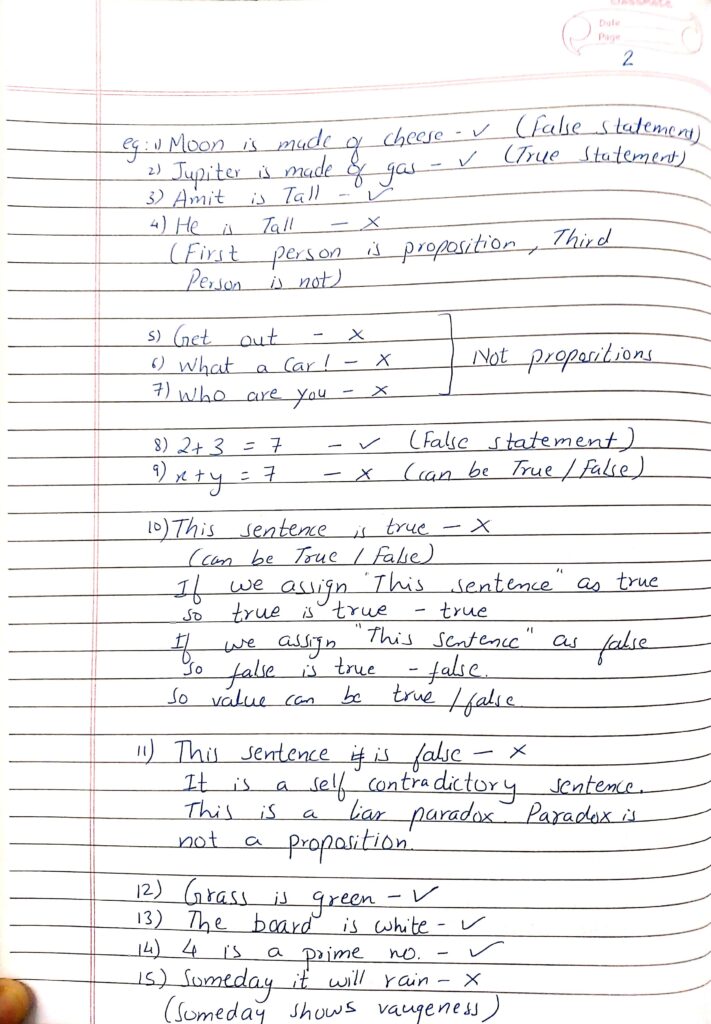 classmate
Date
Page
2
eg: 1) Moon is made of cheese - ✓ (False statement)
2) Jupiter is made of gas - ✓ (True Statement)
3) Amit is Tall - ✓
4) He is Tall - ×
(First person is proposition, Third
Person is not)
5) Get out - ×
6) What a Car! - ×
7) Who are you - ×
Not propositions
8) 2+3 = 7 - ✓ (False statement)
9) x+y = 7 - × (can be True / False)
10) This sentence is true - ×
(can be True / False)
If we assign "This sentence" as true
so true is true - true
If we assign "This sentence" as false
so false is true - false.
So value can be true / false
11) This sentence is false - ×
It is a self contradictory sentence.
This is a liar paradox. Paradox is
not a proposition.
12) Grass is green - ✓
13) The board is white - ✓
14) 4 is a prime no. - ✓
15) Someday it will rain - ×
(Someday shows vaugeness)